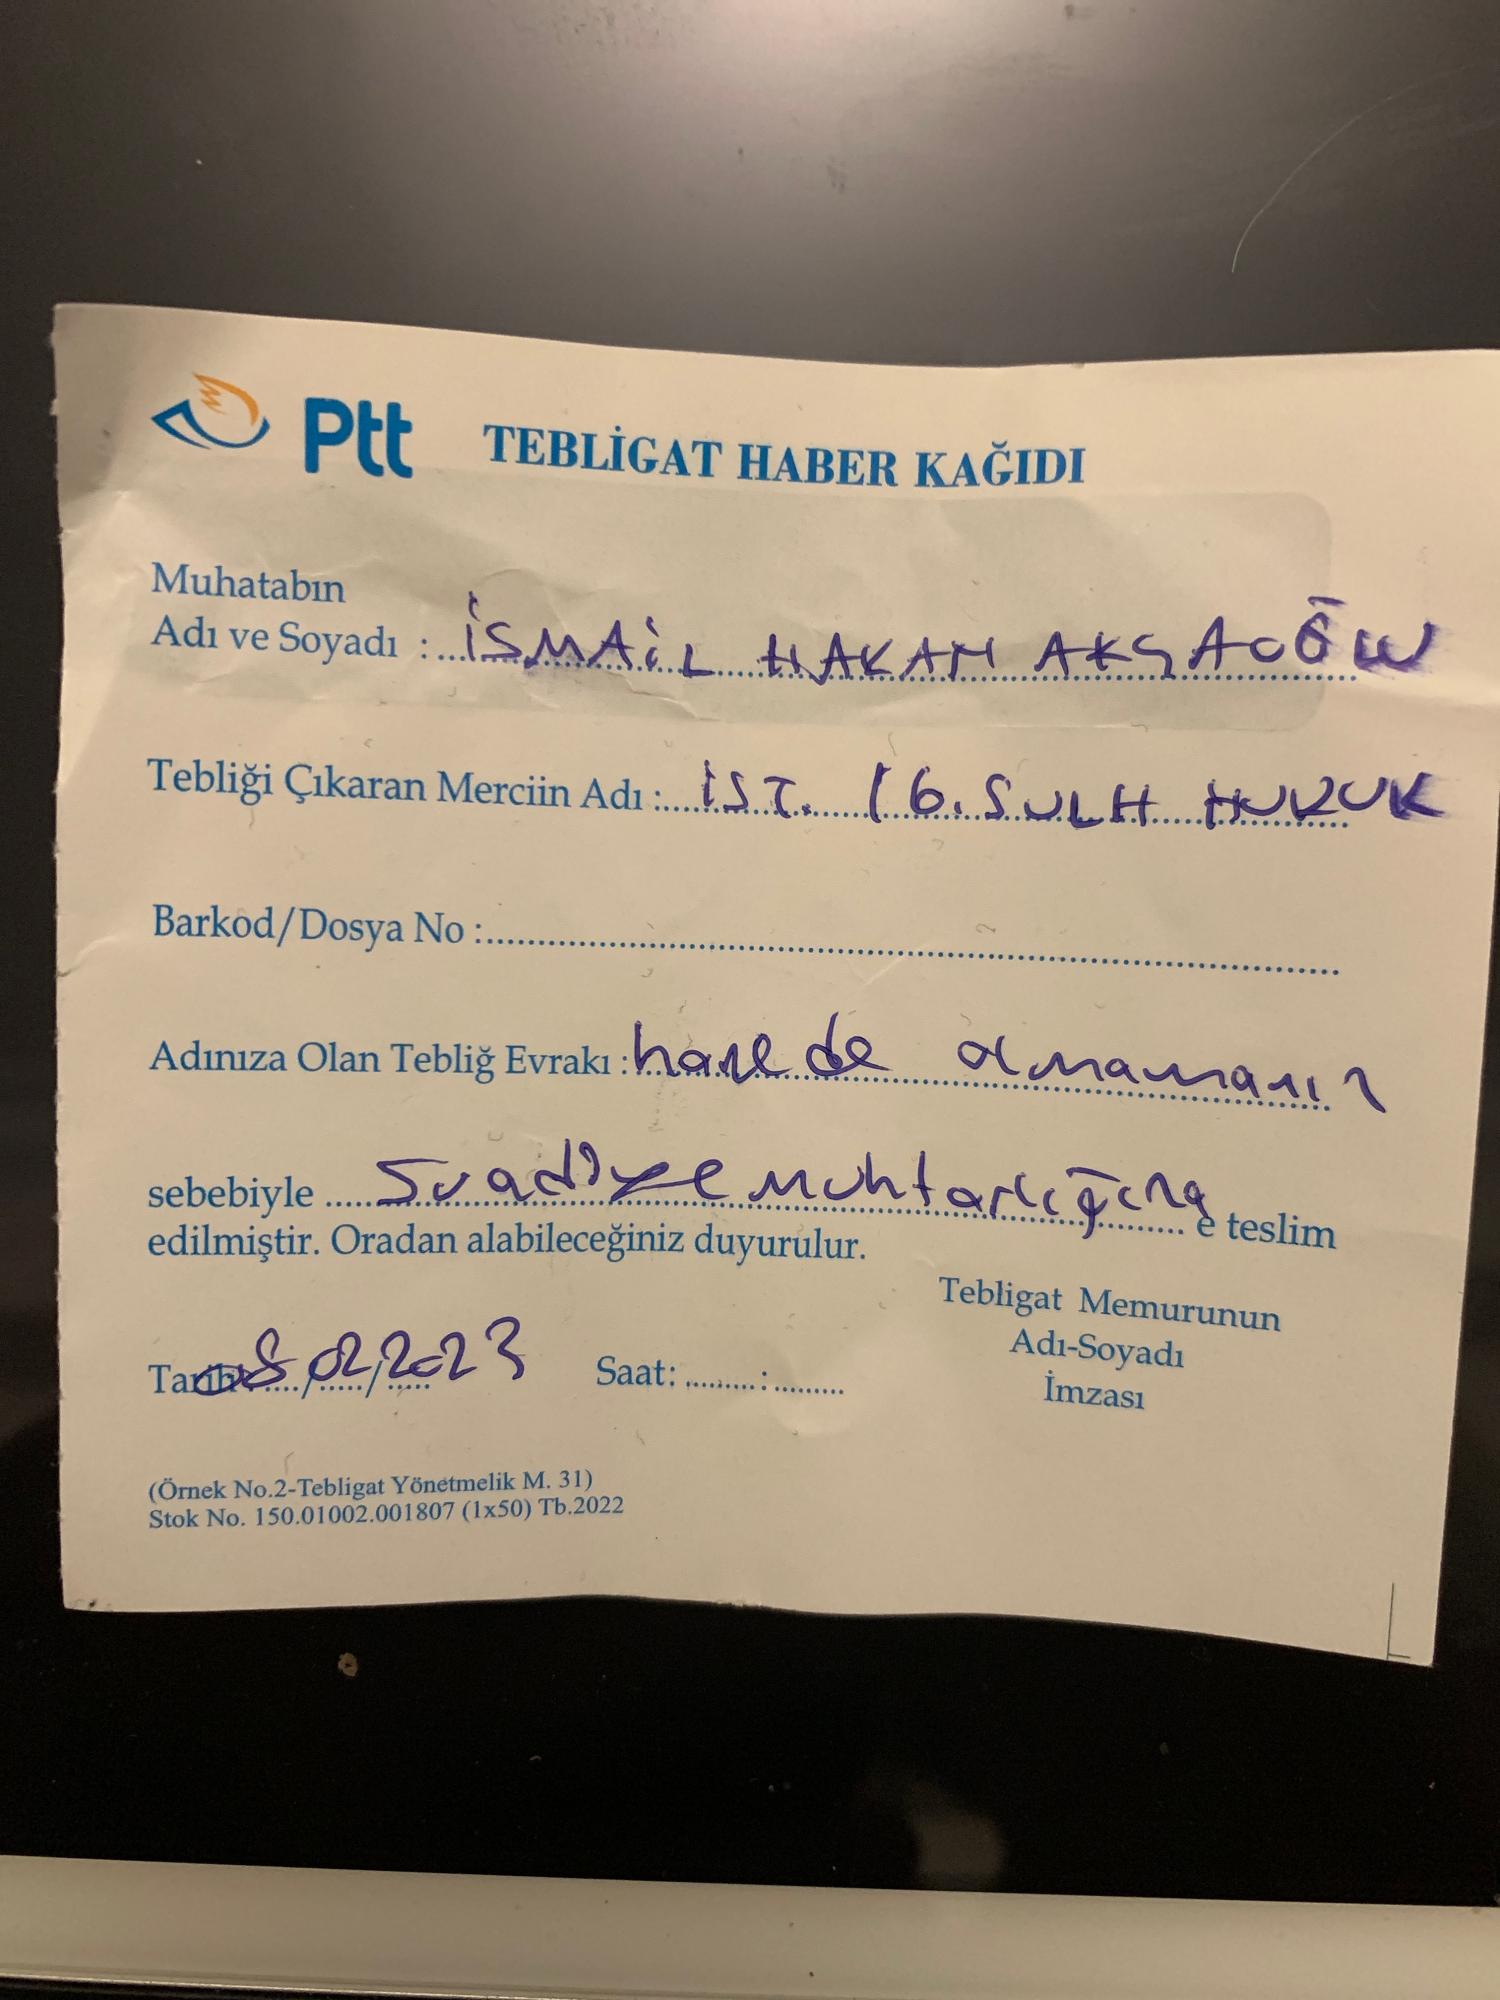 Ptt TEBLİGAT HABER KAĞIDI
Muhatabın
Adı ve Soyadı : İSMAİL HAKAN
Tebliği Çıkaran Merciin Adı : İST. 16. SULH HUKUK
Barkod/Dosya No :
Adınıza Olan Tebliğ Evrakı : hanede olmamanın
sebebiyle Suadiye muhtarlığına e teslim
edilmiştir. Oradan alabileceğiniz duyurulur.
Tebligat Memurunun
Adı-Soyadı
İmzası
Tarih 08/02/2023 Saat: :
(Örnek No.2-Tebligat Yönetmelik M. 31)
Stok No. 150.01002.001807 (1x50) Tb.2022